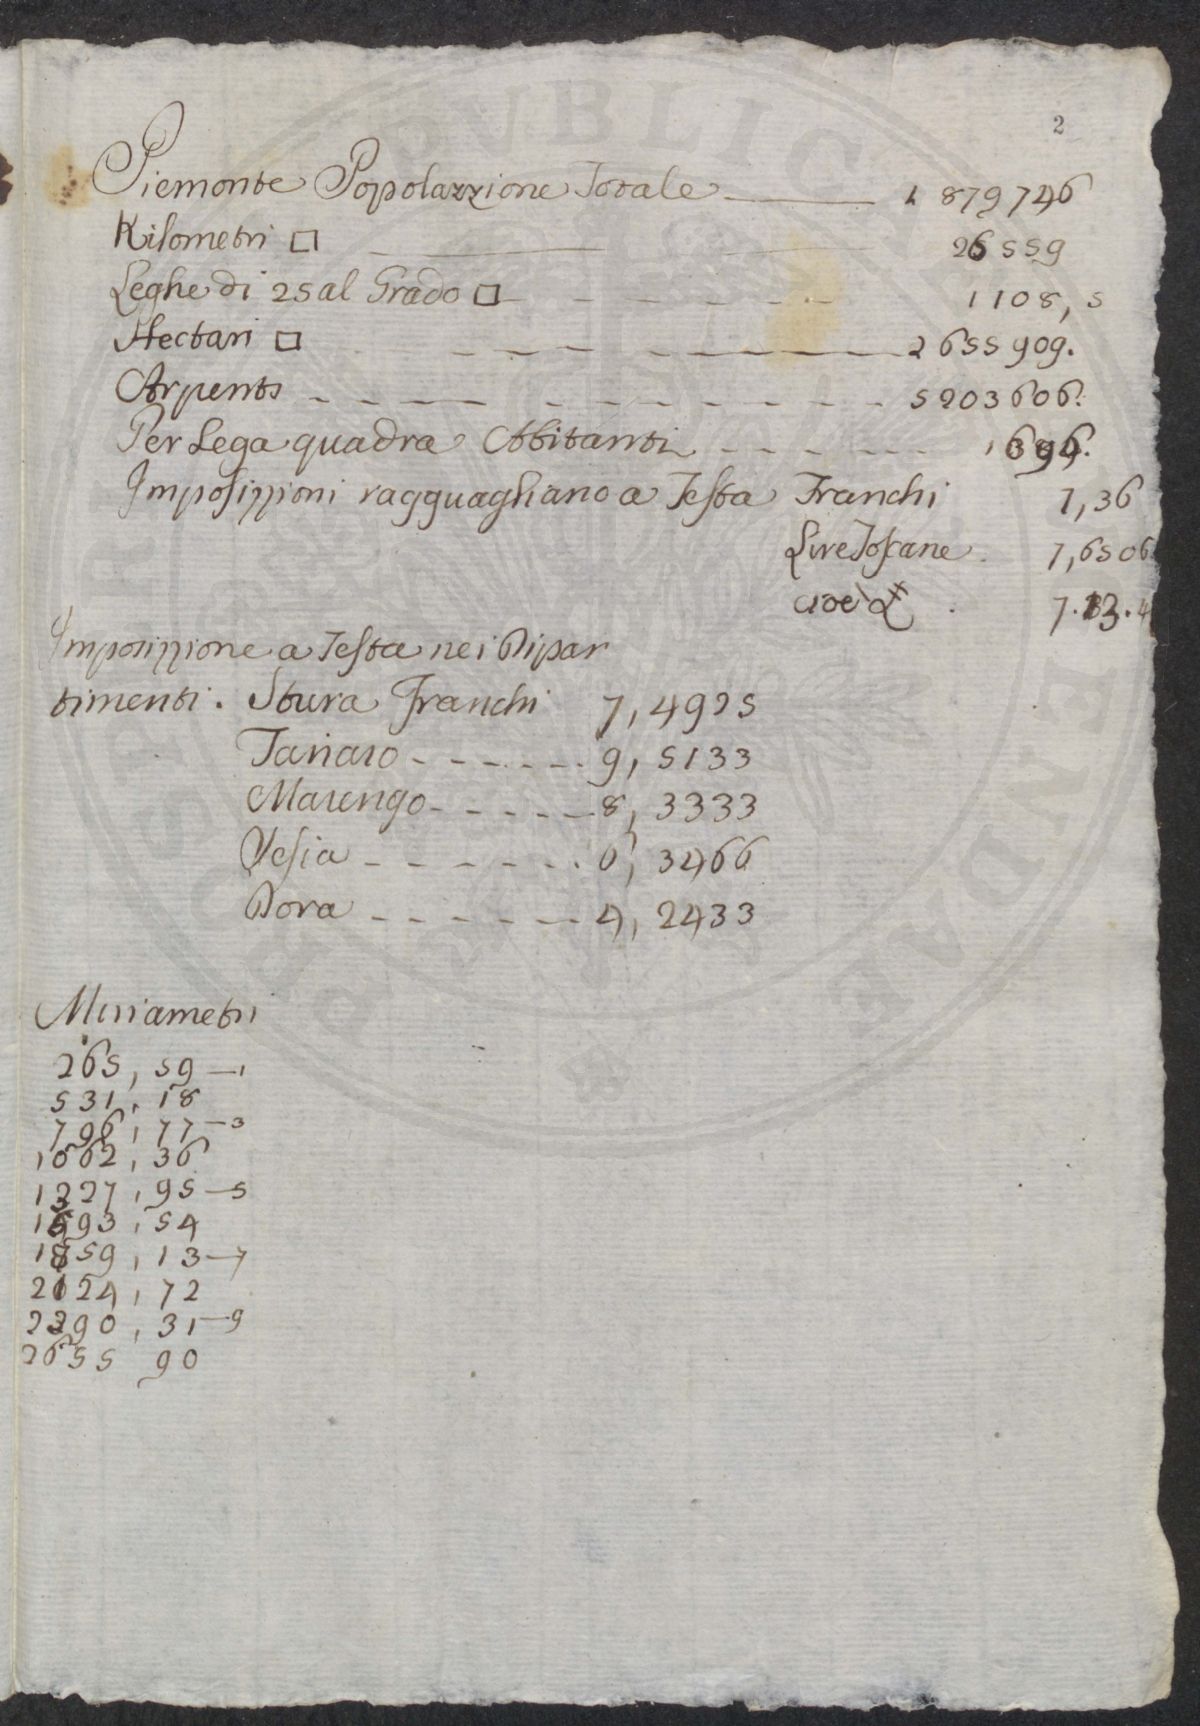 2
Piemonte Popolazzione Totale 1879746
Kilometri □ 26559
Leghe di 25 al Grado □ 1108,5
Hectari □ 2655909.
Arpents 5203606.
Per Lega quadra Abitanti
Imposizzioni ragguagliano a Testa Franchi 7,36
Lire Toscane 7,6506
cioè 7.13.4
Imposizzione a Testa nei Dipar
timenti. Stura Franchi 7,4925
Tanaro 9,5133
Marengo 8,3333
Sesia 6,3466
Dora 4,2433
Miriametri
265,59—1
531,18
796,77—3
1062,36
1327,95—5
1593,54
1859,13—7
2124,72
2390,31—9
2655 90
PUBLICAE